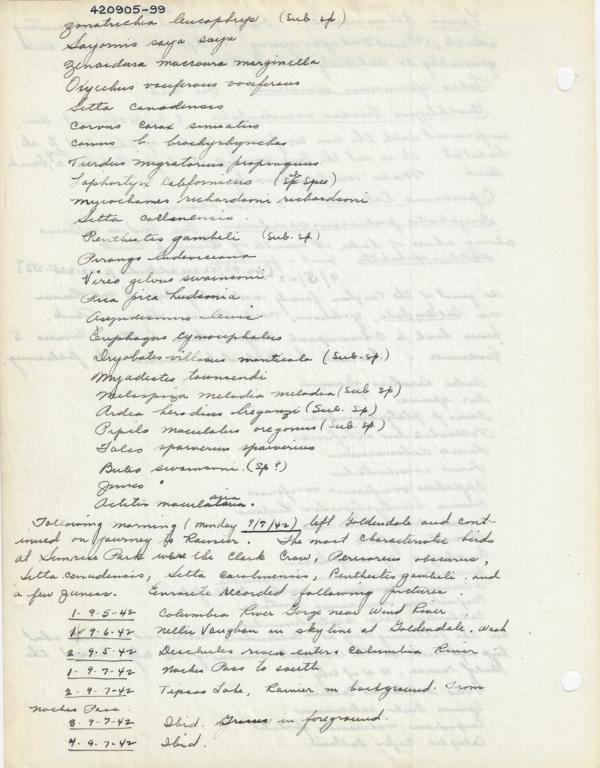 420905-99
Zonotrichia leucophrys (Sub sp.)
Sayornis saya saya
Zenaidura macroura marginella
Oxyechus vociferous vociferous
Sitta canadensis
Corvus corax sinuatus
Corvus b. brachyrhynchos
Turdus migratorius propinquus
Lophortyx Californicus. (Sp Spec)
Myiochanes richardsoni richardsoni
Sitta
Penthestes gambeli (Sub. sp.)
Piranga ludoviciana
Vireo gilvus swainsoni
Pica pica hudsonia
Asyndesmus lewis
Euphagus cyanocephalus
Dryobates villosus monticola (Sub. sp.)
Myadestes townsendi
Melospiza melodia melodia (Sub sp)
Ardea herodius treganzi (Sub. Sp)
Pipilo maculatus oregonus (Sub. sp)
Falco sparverius sparverius
Buteo swainsoni. (Sp?)
Junco
Actitis
Following morning (Monday 9/7/42) left Goldendale and cont-
inued on journey to Rainier. The most characteristic birds
at Sunrise Park were the Clark Crow, Perisoreus obscurus,
Sitta canadensis, Sitta carolinensis, Penthestes gambeli and
a few Juncos. Enroute recorded following pictures.
1- 9-5-42 Columbia River Gorge near Wind River
1- 9-6-42 Nellie Vaughan in skyline at Goldendale, Wash
2- 9-5-42 Deschutes river enters Columbia River
1- 9-7-42 Naches Pass to south
2- 9-7-42 Tipsoo Lake, Rainier in background. From
Naches Pass.
3- 9-7-42 Ibid. Grasses in foreground.
4- 9-7-42 Ibid.